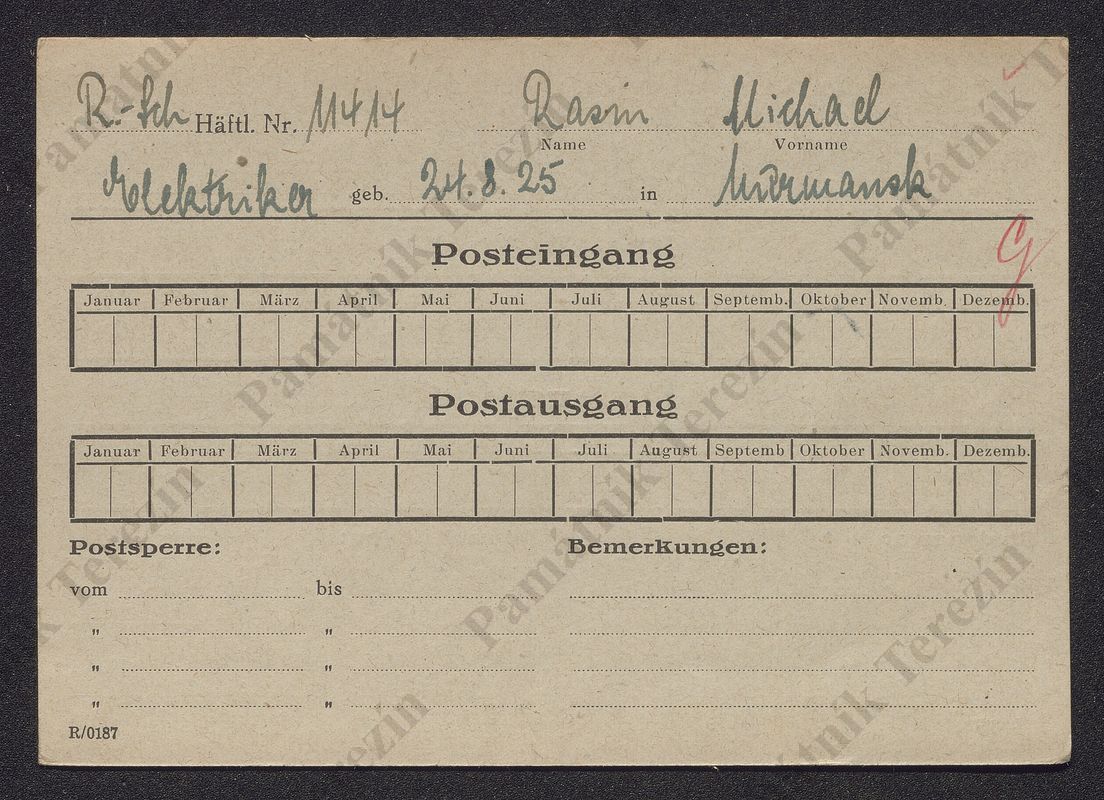 R.-Sch Häftl. Nr. 11414 Rasin Michael
Name Vorname
Elektriker geb. 24.8.25 in Murmansk
Posteingang
Januar Februar März April Mai Juni Juli August Septemb. Oktober Novemb. Dezemb.
Postausgang
Januar Februar März April Mai Juni Juli August Septemb Oktober Novemb. Dezemb.
Postsperre: Bemerkungen:
vom bis
" "
" "
" "
R/0187
Památník Terezín